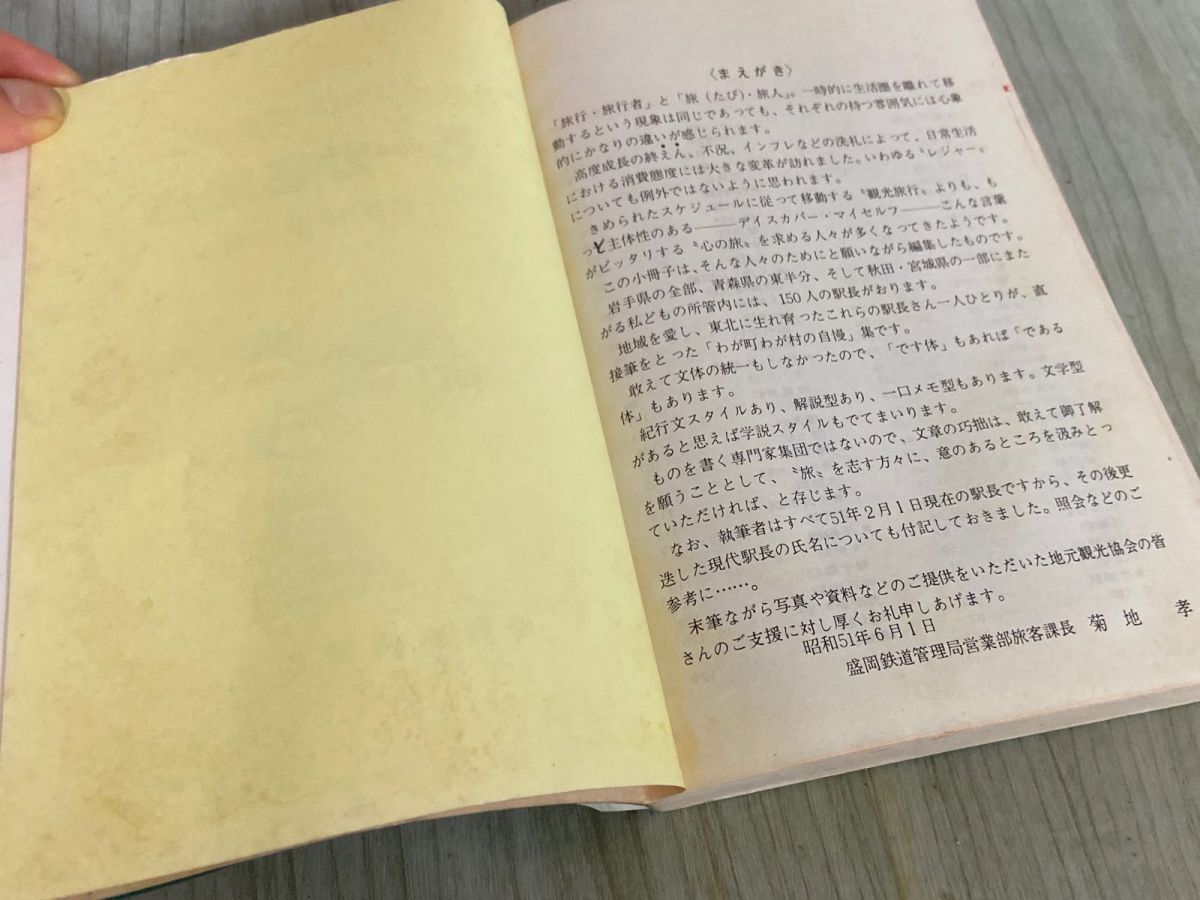 〈まえがき〉
「旅行・旅行者」と「旅（たび）・旅人」。一時的に生活圏を離れて移
動するという現象は同じであっても、それぞれの持つ雰囲気には心象
的にかなりの違いが感じられます。
高度成長の終えん、不況、インフレなどの洗礼によって、日常生活
における消費態度には大きな変革が訪れました。いわゆる〝レジャー〟
についても例外ではないように思われます。
きめられたスケジュールに従って移動する〝観光旅行〟よりも、も
っと主体性のある――デイスカバー・マイセルフ――こんな言葉
がピッタリする〝心の旅〟を求める人々が多くなってきたようです。
この小冊子は、そんな人々のためにと願いながら編集したものです。
岩手県の全部、青森県の東半分、そして秋田・宮城県の一部にまた
がる私どもの所管内には、150人の駅長がおります。
地域を愛し、東北に生れ育ったこれらの駅長さん一人ひとりが、直
接筆をとった「わが町わが村の自慢」集です。
敢えて文体の統一もしなかったので、「です体」もあれば「である
体」もあります。
紀行文スタイルあり、解説型あり、一口メモ型もあります。文学型
があると思えば学説スタイルもでてまいります。
ものを書く専門家集団ではないので、文章の巧拙は、敢えて御了解
を願うこととして、〝旅〟を志す方々に、意のあるところを汲みとっ
ていただければ、と存じます。
なお、執筆者はすべて51年2月1日現在の駅長ですから、その後更
迭した現代駅長の氏名についても付記しておきました。照会などのご
参考に……。
末筆ながら写真や資料などのご提供をいただいた地元観光協会の皆
さんのご支援に対し厚くお礼申しあげます。
昭和51年6月1日
盛岡鉄道管理局営業部旅客課長　菊地　孝